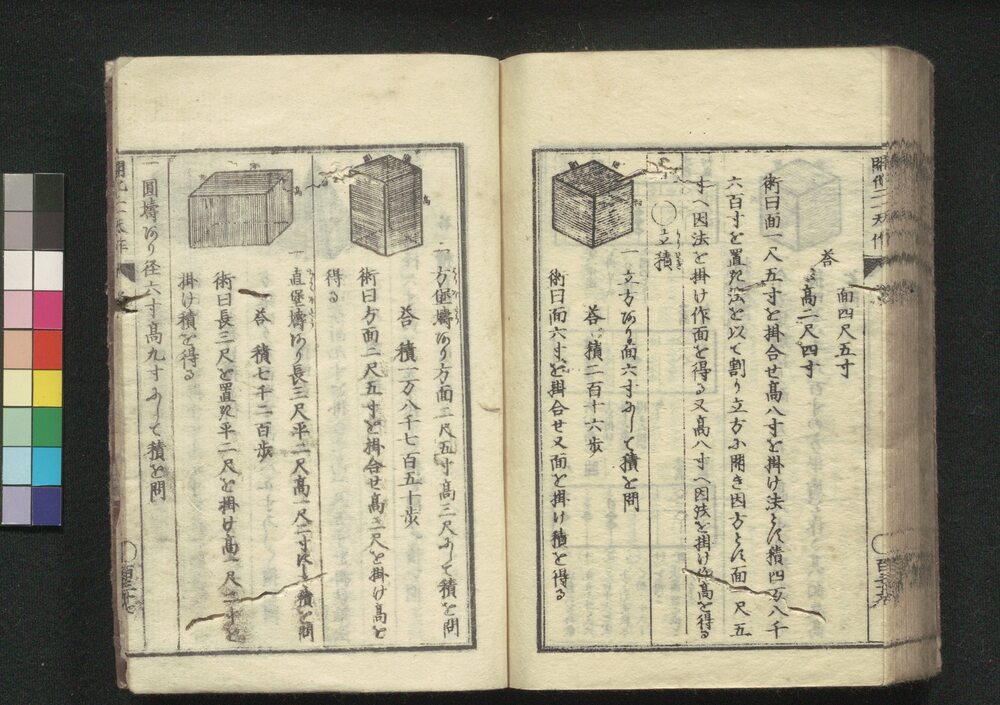 面四尺五寸
答
高二尺四寸
術曰面一尺五寸を掛合せ高八寸を掛け法とす積四万八千
六百寸を置見法を以て割り立方に開き因方とす面一尺五
寸へ因法を掛け作面を得る又高八寸へ因法を掛け作高を得る
○立積
一立方あり面六寸にして積を問
答 積二百十六歩
術曰面六寸を掛合せ又面を掛け積を得る
一方堡壔あり方面二尺五寸高三尺にして積を問
答 積一万八千七百五十歩
術曰方面二尺五寸を掛合せ高三尺を掛け高を
得る
一直堡壔あり長三尺平二尺高一尺二寸にして積を問
答 積七千二百歩
術曰長三尺を置見平二尺を掛け高一尺二寸を
掛け積を得る
一圓壔あり径六寸高九寸にして積を問